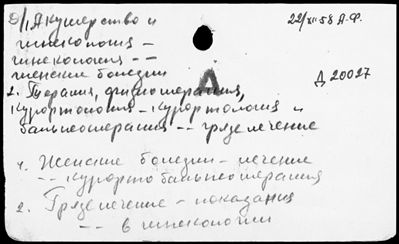 1. Акушерство и 22/XII 58 А.Ф.
гинекология –
гинекология – –
женские болезни
2. Терапия, физиотерапия, Д 20027
курортология – курортология и
бальнеотерапия – – грязелечение
1. Женские болезни – лечение
– – курорто бальнеотерапия
2. Грязелечение – показания
– – в гинекологии